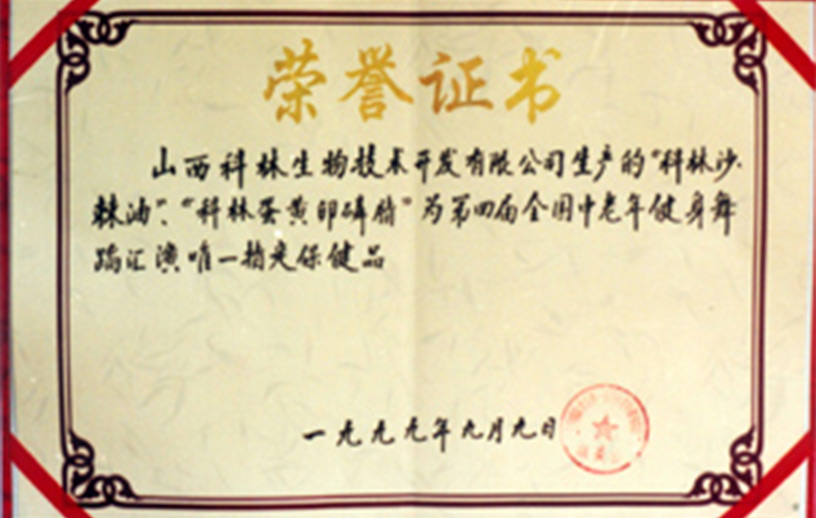 荣誉证书
山西科林生物技术开发有限公司生产的“科林沙
棘油”、“科林蛋黄卵磷脂”为第四届全国中老年健身舞
蹈汇演唯一指定保健品
一九九九年九月九日